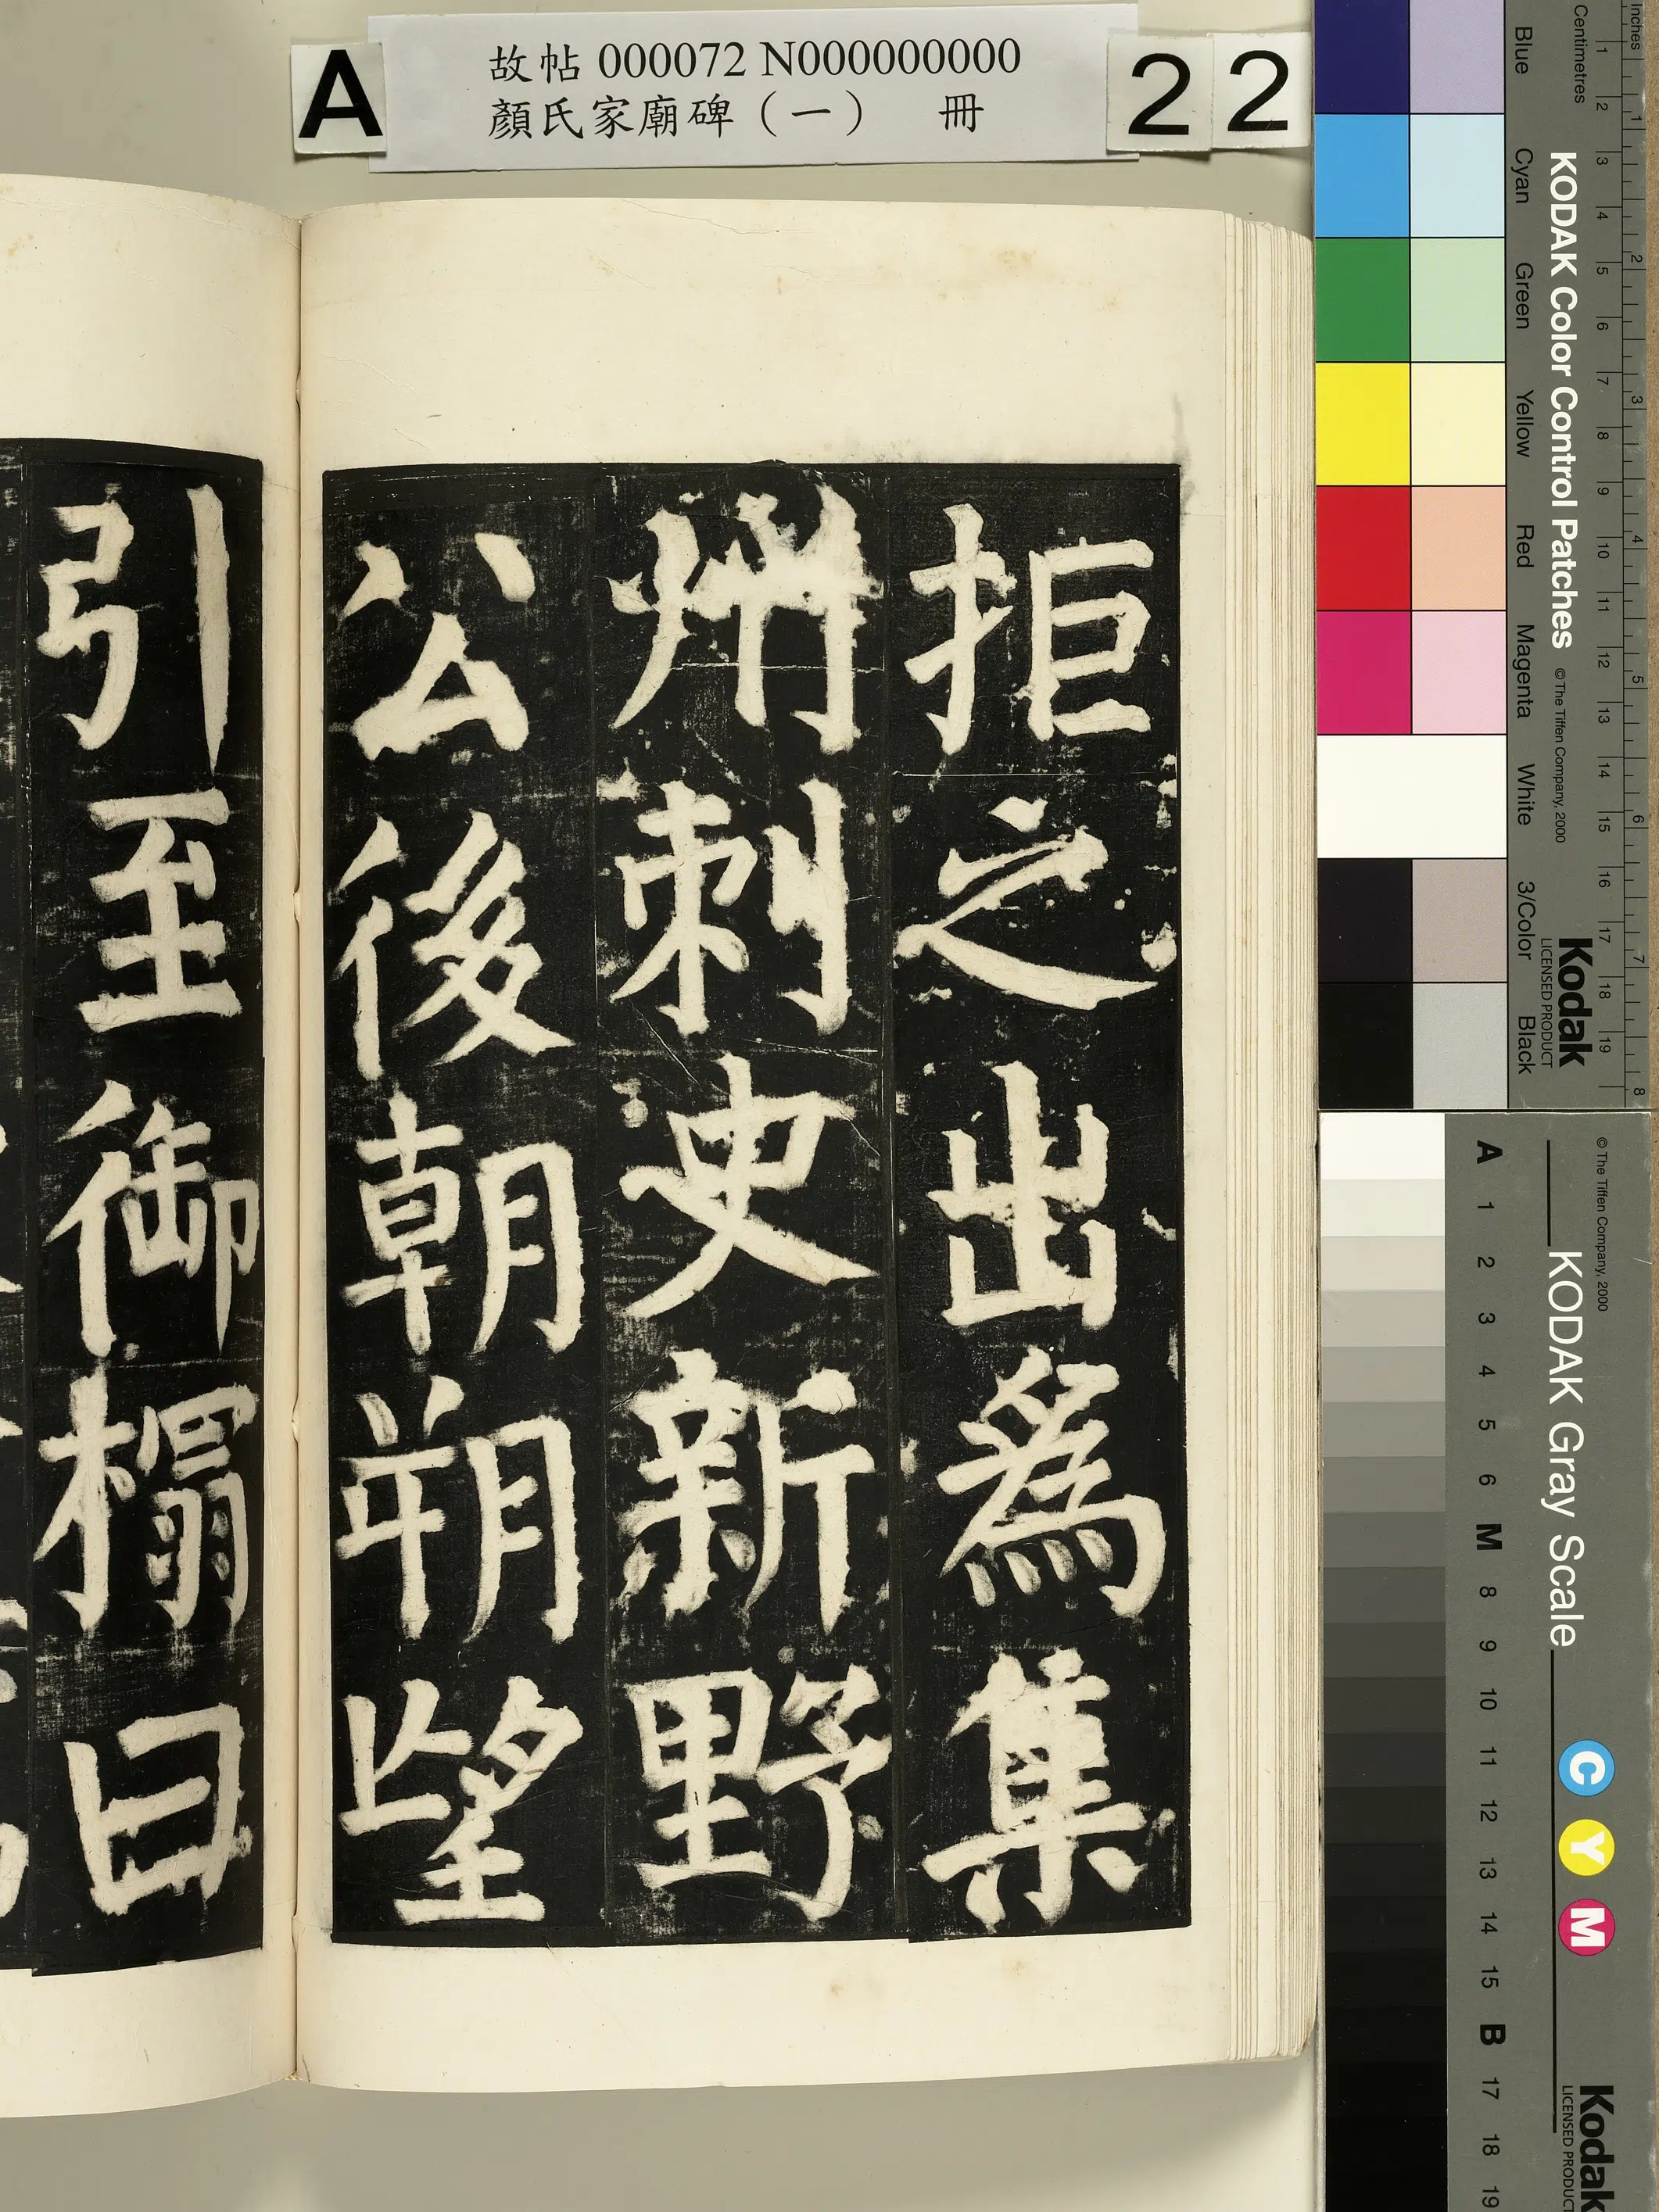 A
故帖 000072 N000000000
顏氏家廟碑（一） 冊
2 2
拒之出為集
州刺史新野
公後朝朔望
引至御榻曰
Inches
Centimetres
1 2 3 4 5 6 7 8
1 2 3 4 5 6 7 8 9 10 11 12 13 14 15 16 17 18 19
KODAK Color Control Patches
© The Tiffen Company, 2000
Kodak
LICENSED PRODUCT
Blue Cyan Green Yellow Red Magenta White 3/Color Black
© The Tiffen Company, 2000
KODAK Gray Scale
C Y M
Kodak
LICENSED PRODUCT
A 1 2 3 4 5 6 M 8 9 10 11 12 13 14 15 B 17 18 19